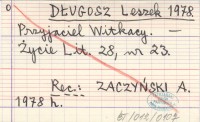 DŁUGOSZ Leszek 1978.
Przyjaciel Witkacy. —
Życie Lit. 28, nr 23.
Rec.: ZACZYŃSKI A.
1978 h.